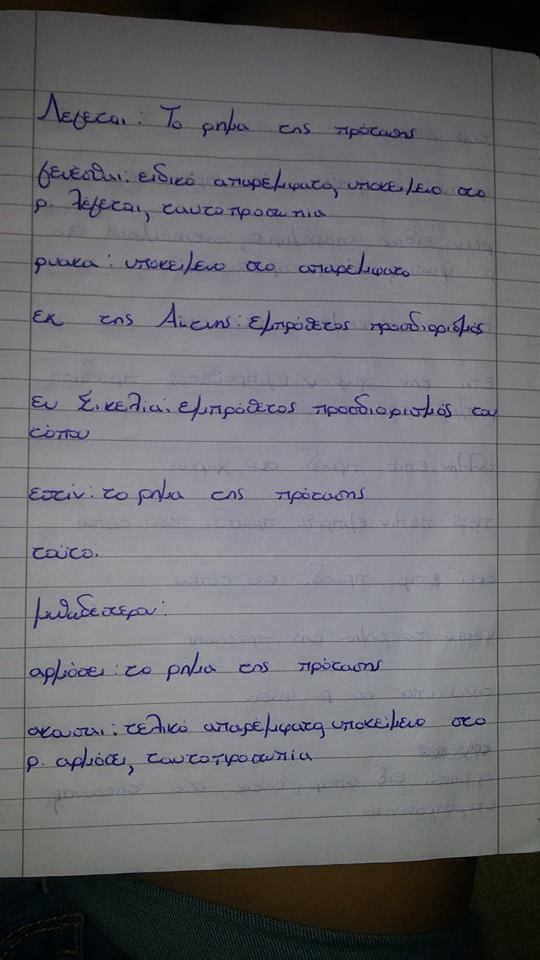 Λέγεται: Το ρήμα της πρότασης
γενέσθαι: ειδικό απαρέμφατο, υποκείμενο στο
ρ. λέγεται, ταυτοπροσωπία
ρυακα: υποκείμενο στο απαρέμφατο
εκ της Αίτνης: εμπρόθετος προσδιορισμός
εν Σικελία: εμπρόθετος προσδιορισμός του
τόπου
εστίν: το ρήμα της πρότασης
τούτο:
μυθωδέστερον:
αρμόσει: το ρήμα της πρότασης
ακούσαι: τελικό απαρέμφατο, υποκείμενο στο
ρ. αρμόσει, ταυτοπροσωπία